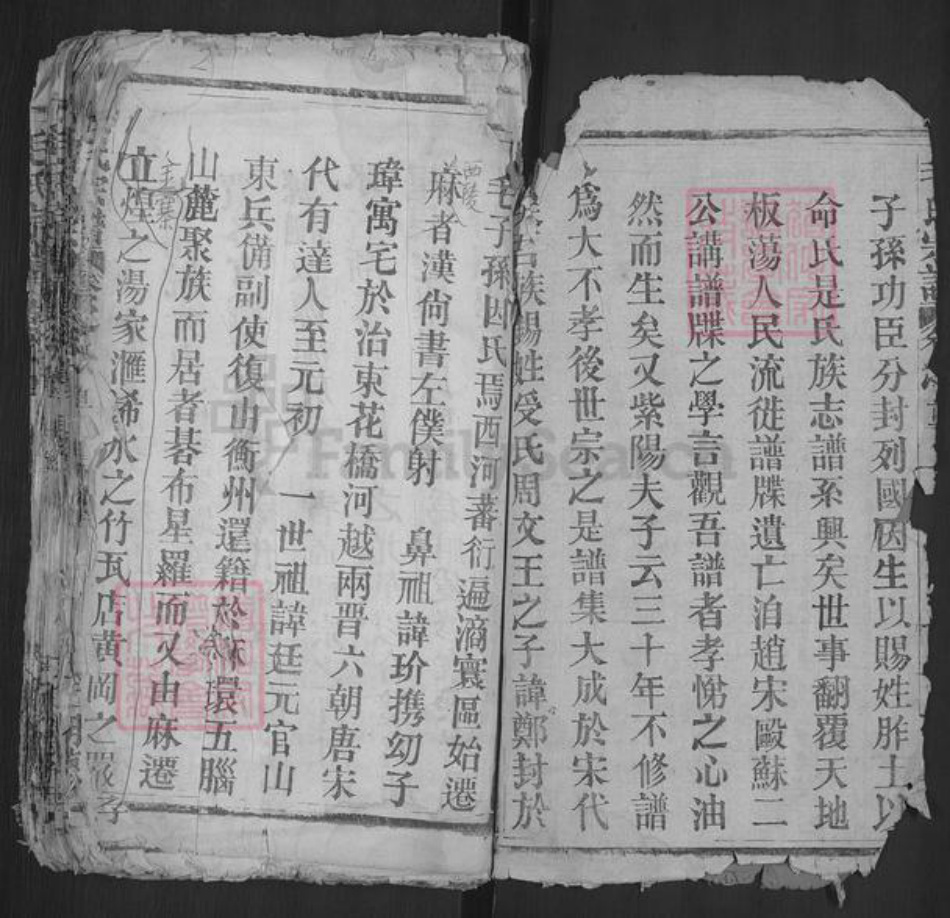 子孫功臣分封列國因生以賜姓胙土以
命氏是氏族志譜系興矣世事翻覆天地
板蕩人民流徙譜牒遺亡洎趙宋歐蘇二
公講譜牒之學言觀吾譜者孝悌之心油
然而生矣又紫陽夫子云三十年不修譜
為大不孝後世宗之是譜集大成於宋代
族錫姓受氏周文王之子諱鄭封於
毛子孫因氏焉西河蕃衍遍滿寰區始遷
西陵
麻者漢尚書左僕射 鼻祖諱玠携幼子
瑋寓宅於治東花橋河越兩晉六朝唐宋
代有達人至元初 一世祖諱廷元官山
東兵備副使復由衡州還籍於麻環五腦
山麓聚族而居者碁布星羅而又由麻遷
立煌之湯家滙浠水之竹瓦店黃岡之
FamilySearch